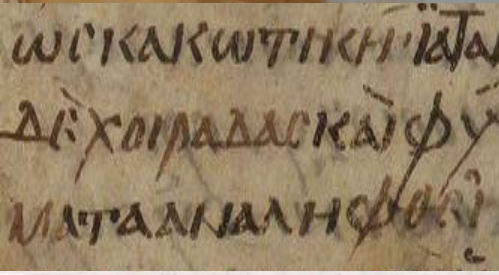 ωσκακωτικη· ϊαται
δὲ χοιραδασκαὶφύ
ματααναλησφθεῖ